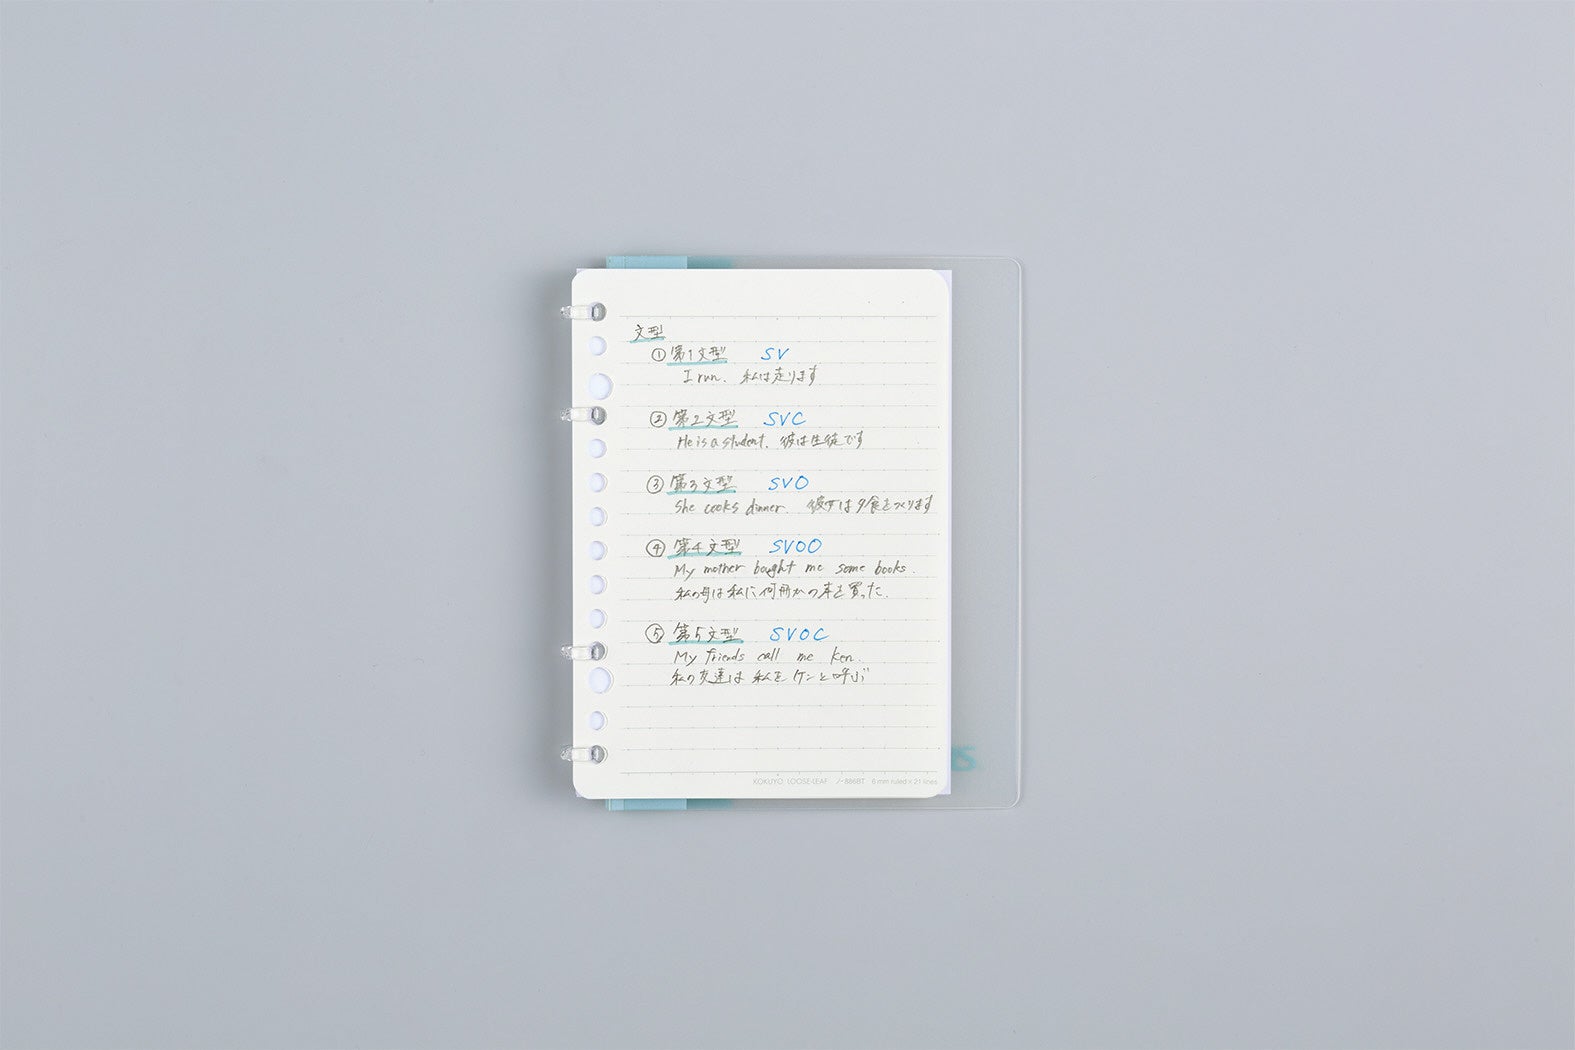 文型
① 第1文型 SV
I run. 私は走ります
② 第2文型 SVC
He is a student. 彼は生徒です
③ 第3文型 SVO
She cooks dinner. 彼女は夕食をつくります
④ 第4文型 SVOO
My mother bought me some books.
私の母は私に何冊かの本を買った.
⑤ 第5文型 SVOC
My friends call me Ken.
私の友達は私をケンと呼ぶ
KOKUYO LOOSE-LEAF ノ-886BT 6 mm ruled x 21 lines